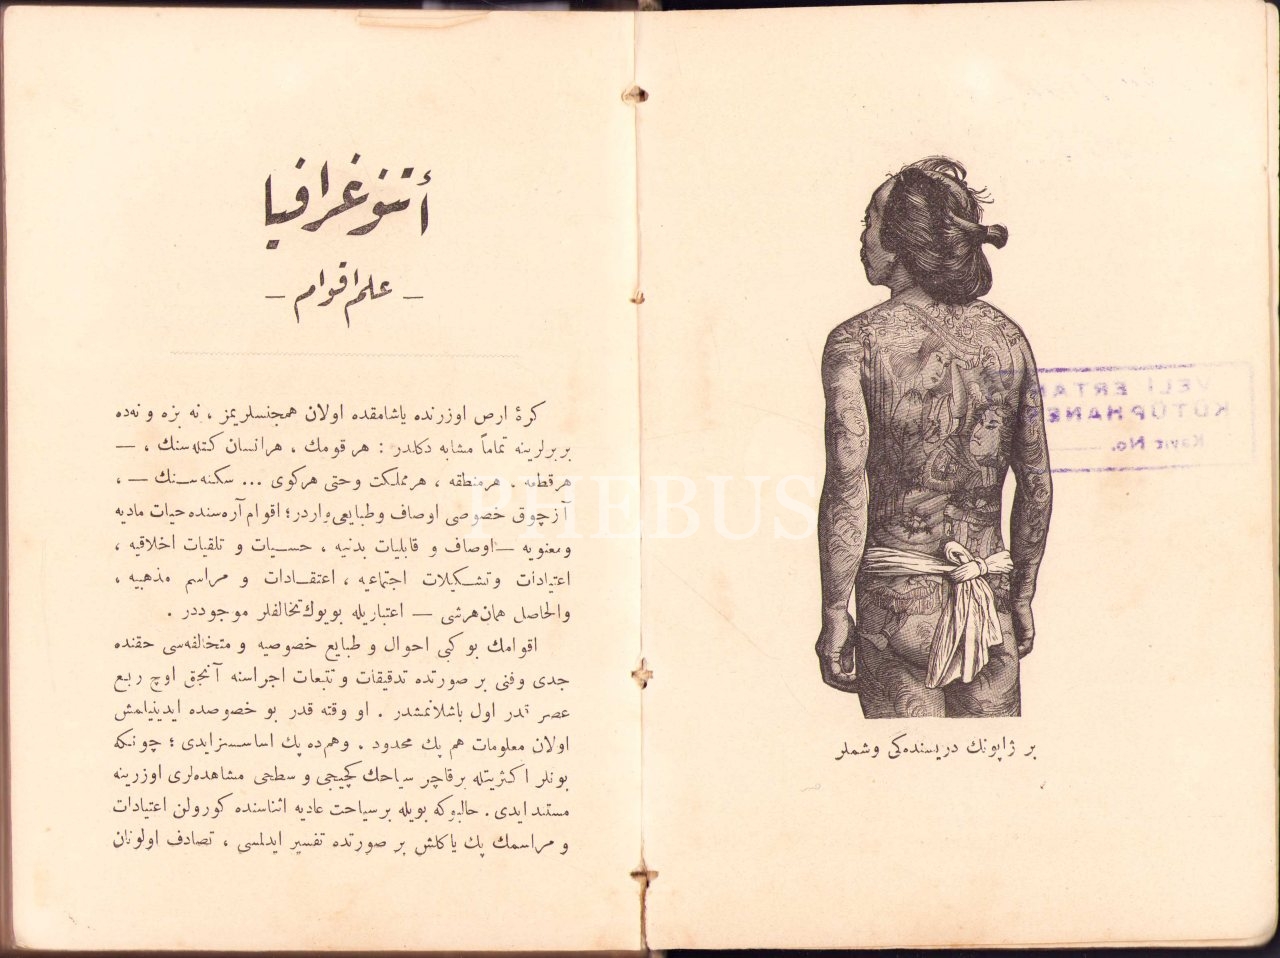 أتنوغرافيا
— علم اقوام —
كرهٔ ارض اوزرنده ياشامقده اولان همجنسلريمز ، نه بزه و نه‌ده
بربرلرينه تماماً مشابه دكلدر : هر قومك ، هرانسان كتله‌سنك ، —
هرقطعه ، هرمنطقه ، هرمملكت وحتى هركوى ... سكنه‌سنك — ،
آزچوق خصوصى اوصاف وطبايعى واردر ؛ اقوام آره‌سنده حيات ماديه
ومعنويه — اوصاف و قابليات بدنيه ، حسيات و تلقيات اخلاقيه ،
اعتيادات وتشكيلات اجتماعيه ، اعتقادات و مراسم مذهبيه ،
والحاصل همان‌هرشى — اعتباريله بويوك تخالفلر موجوددر .
اقوامك بو كبى احوال و طبايع خصوصيه و متخالفه‌سى حقنده
جدى وفنى بر صورتده تدقيقات و تتبعات اجراسنه آنجق اوچ ربع
عصر قدر اول باشلانمشدر . او وقته قدر بو خصوصده ايدينيلمش
اولان معلومات هم پك محدود . وهم‌ده پك اساسسزايدى ؛ چونكه
بونلر اكثريتله برقاچر سياحك كچيجى و سطحى مشاهده‌لرى اوزرينه
مستند ايدى . حالبوكه بويله برسياحت عاديه اثناسنده كورولن اعتيادات
و مراسمك پك ياكلش بر صورتده تفسير ايدلمسى ، تصادف اولونان
بر ژاپونك دريسنده‌كى وشملر
VELİ ERTAN
KÜTÜPHANESİ
Kayıt No.
PHEBUS